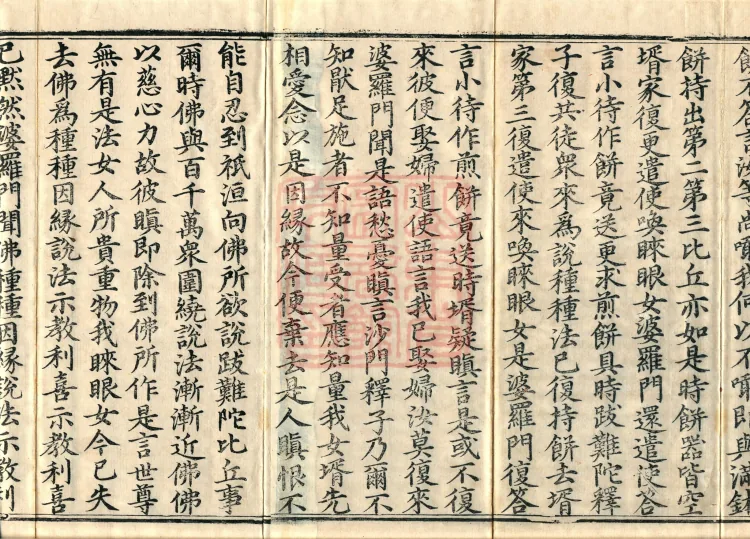 言汝等尚噉我何以不噉即與滿鉢
餅持出第二第三比丘亦如是時餅器皆空
壻家復更遣使喚睞眼女婆羅門還遣使答
言小待作餅竟送更求煎餅具時跋難陀釋
子復共徒衆來爲說種種法已復持餅去壻
家第三復遣使來喚睞眼女是婆羅門復答
言小待作煎餅竟送時壻疑瞋言是或不復
來彼便娶婦遣使語言我已娶婦汝莫復來
婆羅門聞是語愁憂瞋言沙門釋子乃爾不
知猒足施者不知量受者應知量我女壻先
相愛念以是因緣故今便棄去是人瞋恨不
能自忍到祇洹向佛所欲說跋難陀比丘事
爾時佛與百千萬衆圍繞說法漸漸近佛佛
以慈心力故彼瞋即除到佛所作是言世尊
無有是法女人所貴重物我睞眼女今已失
去佛爲種種因緣說法示教利喜示教利喜
已默然婆羅門聞佛種種因緣說法示教利